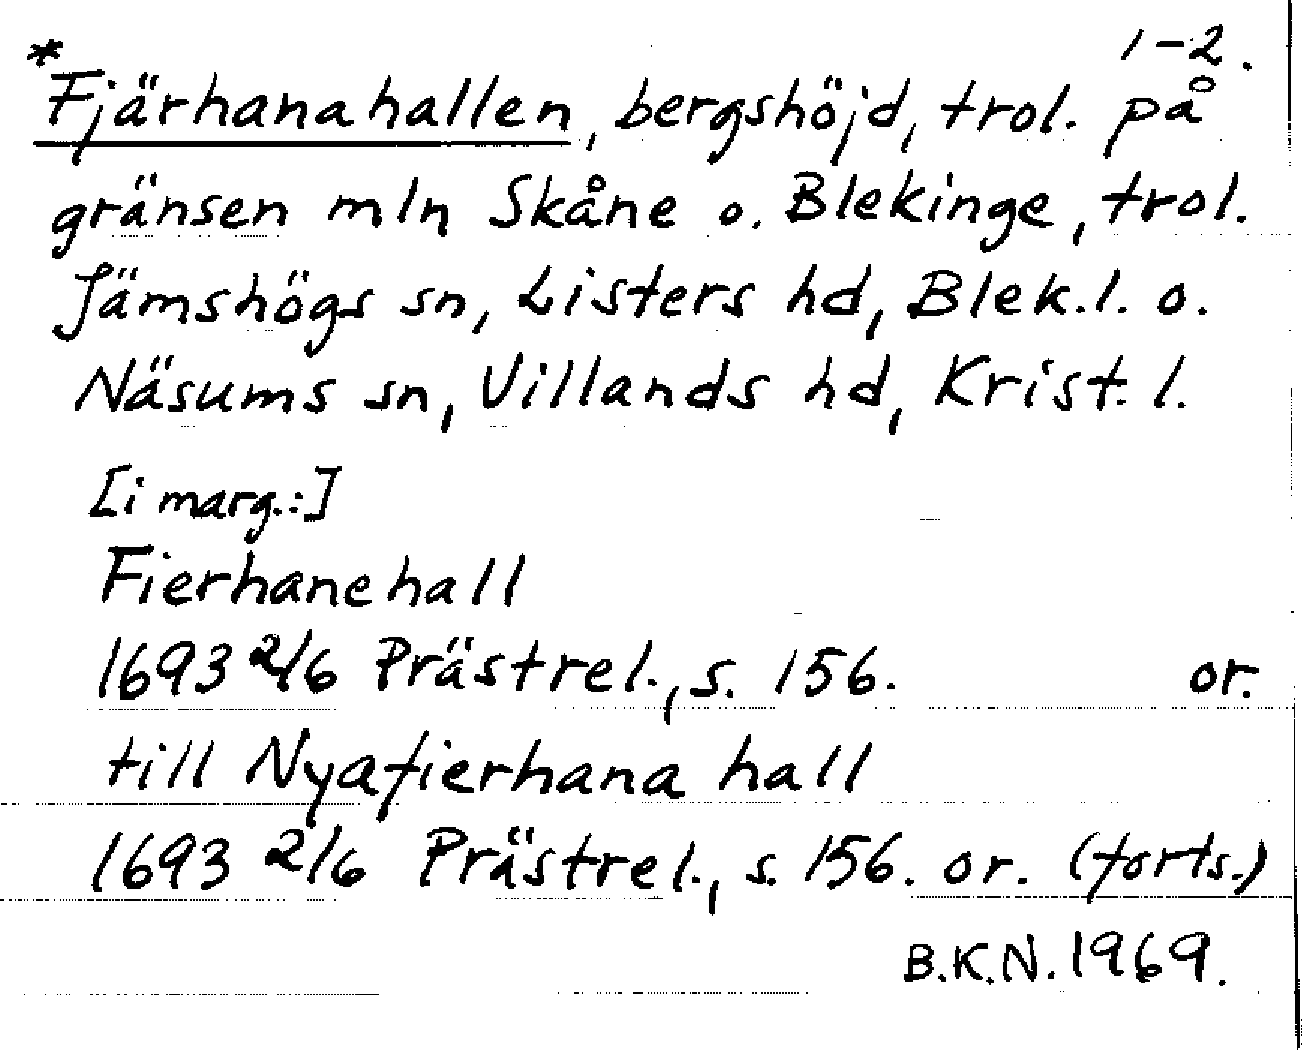 1-2.
*Fjärhanahallen, bergshöjd, trol. på
gränsen mln Skåne o. Blekinge, trol.
Jämshögs sn, Listers hd, Blek.l. o.
Näsums sn, Villands hd, Krist. l.
[i marg.:]
Fierhanehall
1693 2/6 Prästrel., s. 156. or.
till Nyafierhana hall
1693 2/6 Prästrel., s. 156. or. (forts.)
B.K.N. 1969.